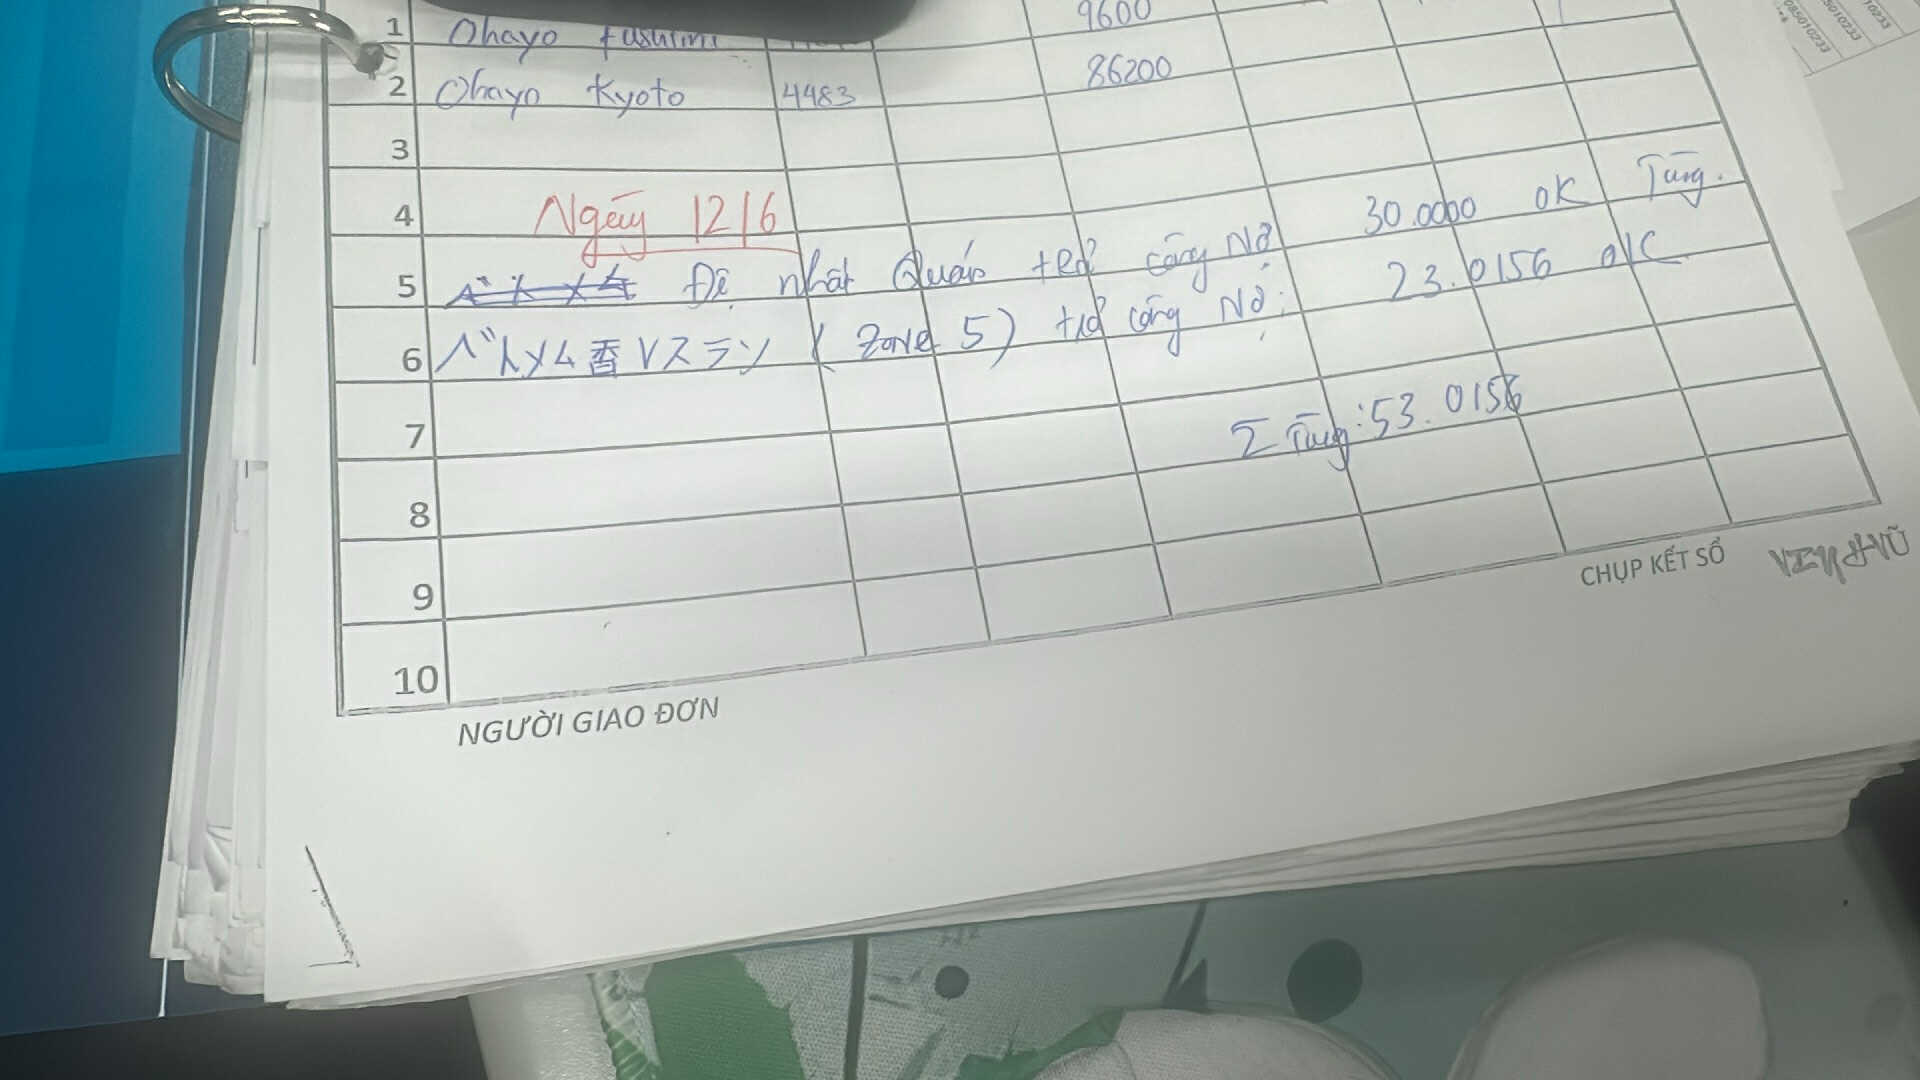 1 Ohayo fushimi 9600
2 Ohayo Kyoto 4483 86200
3
4 Ngày 12/6
5 Đệ nhất Quán trả công Nợ 30.0000 OK Tùng.
6 ベトメム香Vスラン ( Zone 5) trả công Nợ: 23.0156 OK
7 Σ Tùng: 53.0156
8
9
10
NGƯỜI GIAO ĐƠN
CHỤP KẾT SỔ
085010233